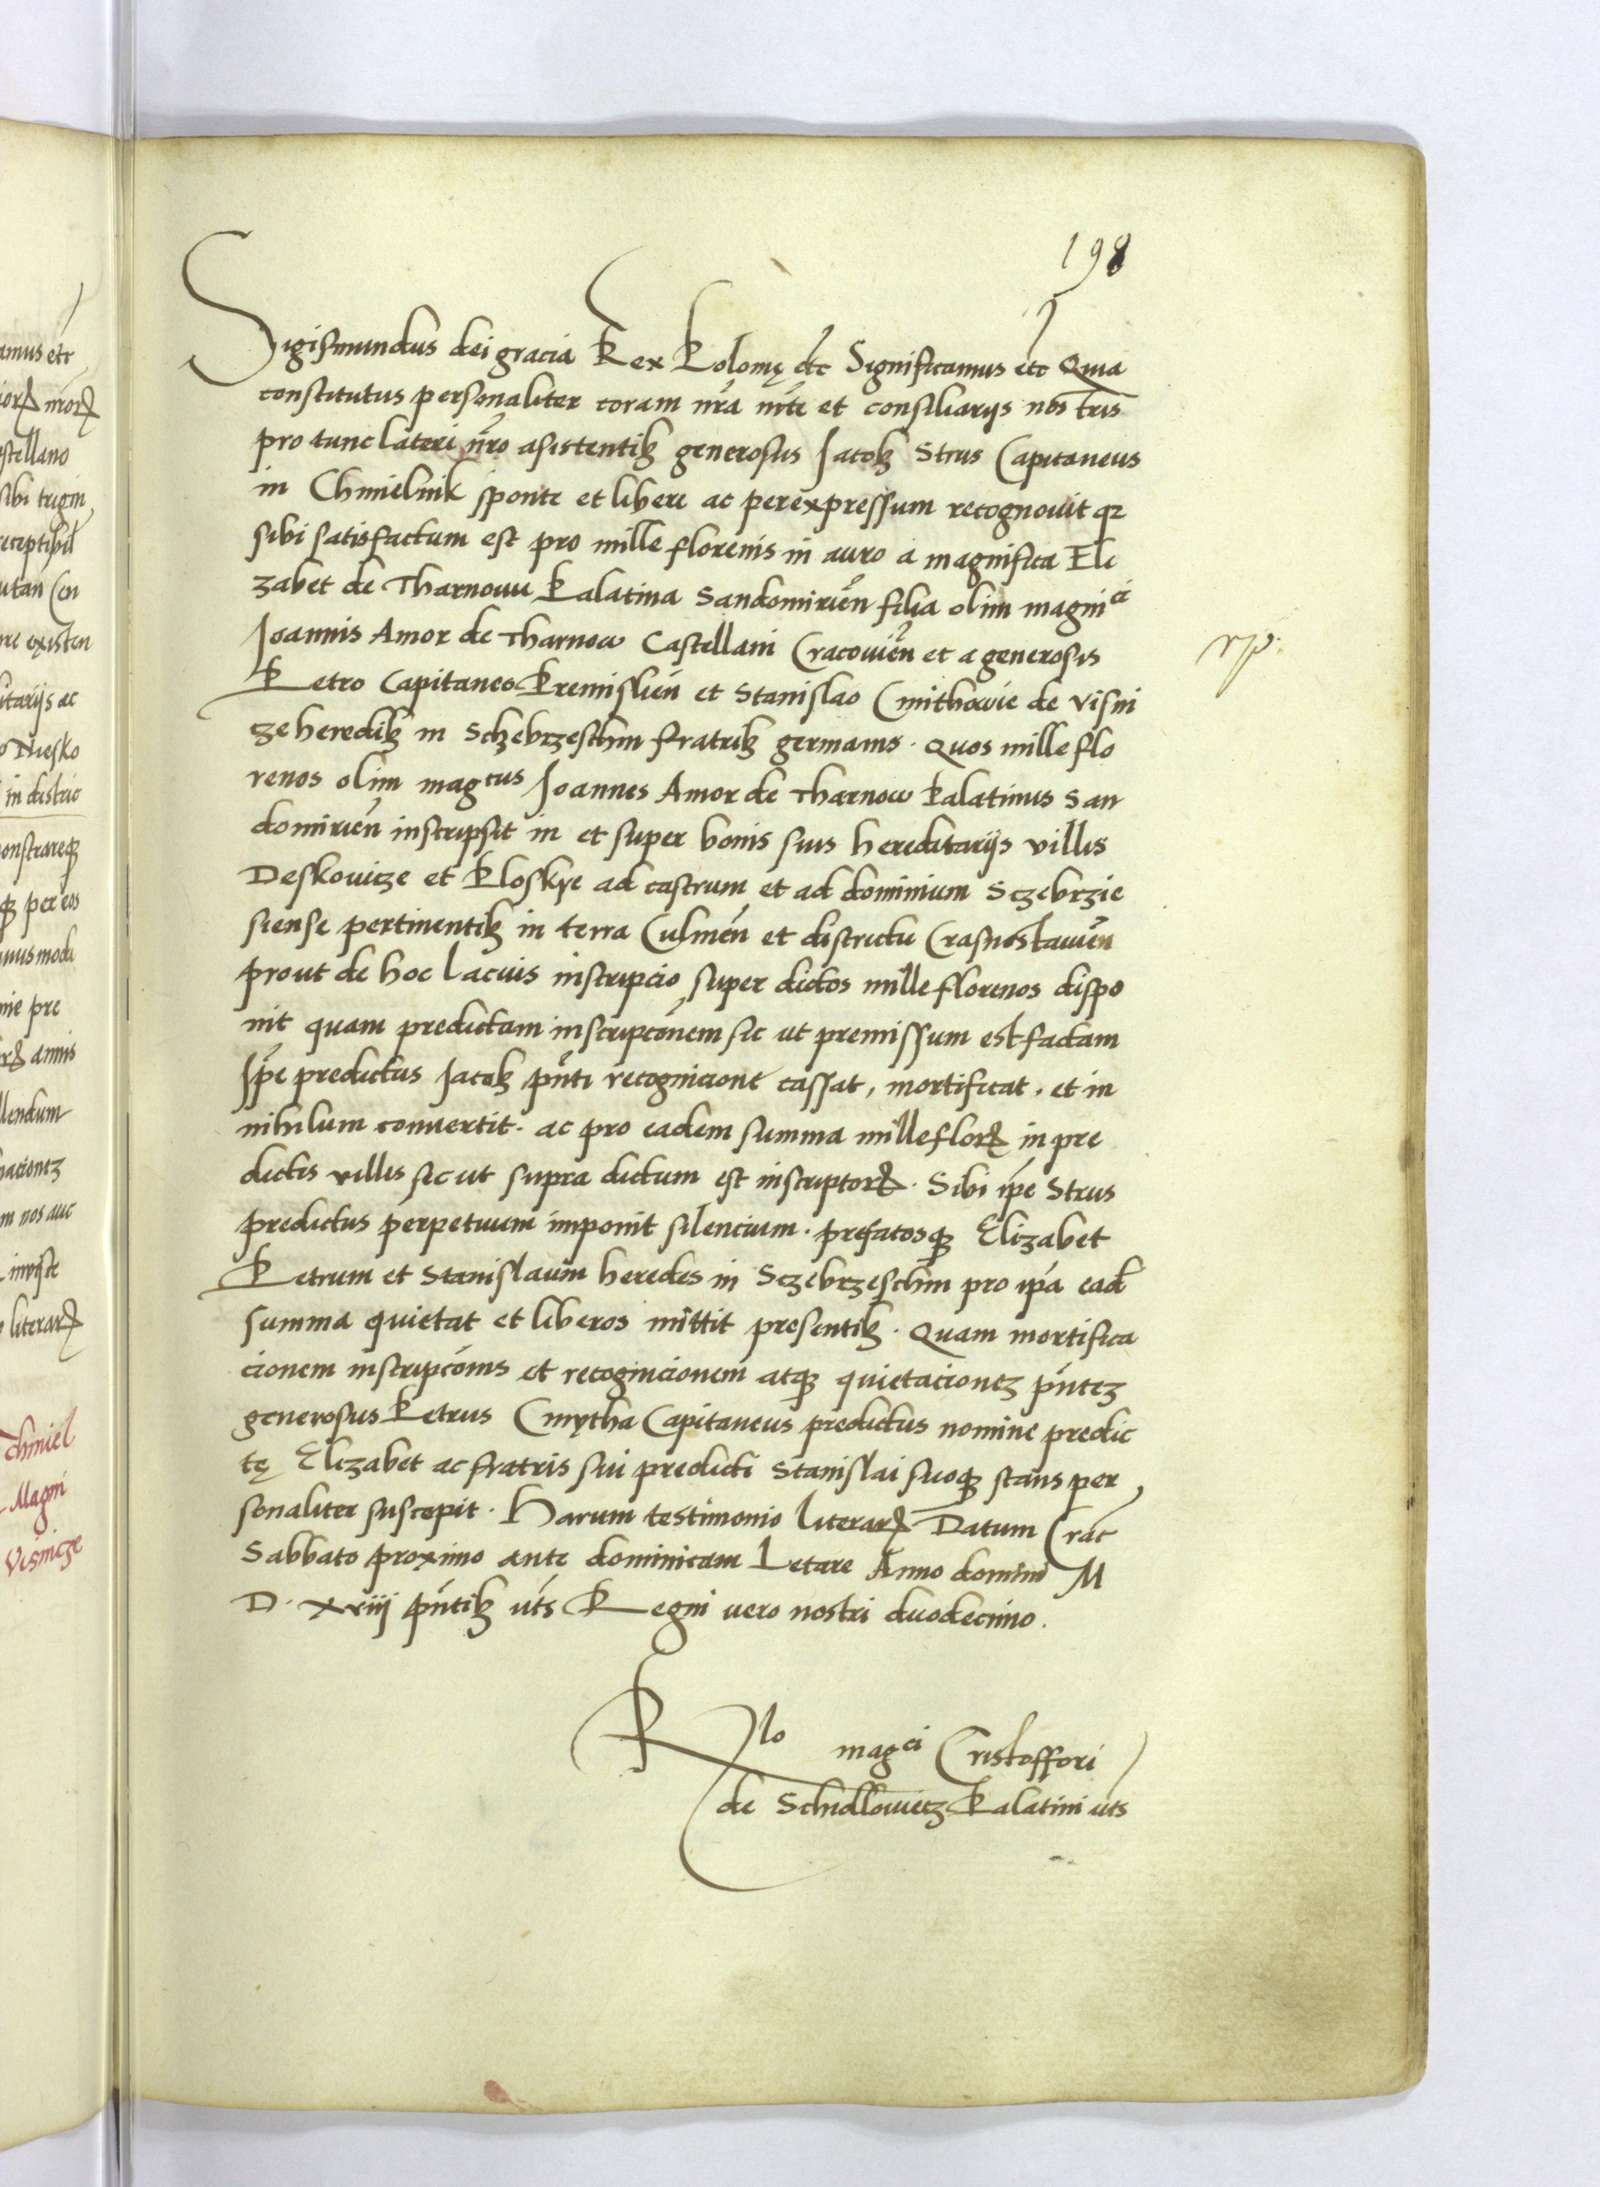 198
Sigismundus dei gracia Rex Polonię etc Significamus etc Quia
constitutus personaliter coram nr̃a mt̃e et consiliarijs nostris
pro tunc lateri nr̃o asistentib₃ generosus Jacob Strus Capitaneus
in Chmielnik sponte et libere ac per expressum recognouit q₂
sibi satisfactum est pro mille florenis in auro a magnifica Eli
zabet de Tharnow Palatina Sandomirień filia olim magnici
Joannis Amor de Tharnow Castellani Cracouień et a generosis
Petro Capitaneo Premislień et Stanislao Cmithowie de Visni
ze heredib₃ in Sczebrzeschin fratrib₃ germanis. Quos mille flo
renos olim magcus Joannes Amor de Tharnow Palatinus San
domirień inscripsit in et super bonis suis hereditarijs villis
Deskouicze et Ploskye ad castrum et ad dominium Sczebrzie
siense pertinentib₃ in terra Culmeń et districtu Crasnostawień
prout de hoc lacius inscripcio super dictos mille florenos dispo
nit quam predictam inscripcõnem sic ut premissum est factam
Ip̃e predictus Jacob pñti recognicione cassat, mortificat, et in
nihilum conuertit. ac pro eadem summa mille florꝝ in pre
dictis villis sic ut supra dictum est inscriptorꝝ. Sibi ip̃e Strus
predictus perpetuum imponit silencium. prefatosqꝫ Elizabet
Petrum et Stanislaum heredes in Sczebrzeschin pro ip̃a ead
summa quietat et liberos mittit presentib₃. Quam mortifica
cionem inscripcõnis et recognicionem atqꝫ quietacionez pñtez
generosus Petrus Cmytha Capitaneus predictus nomine predic
tę Elizabet ac fratris sui predicti Stanislai suoqꝫ stans per
sonaliter suscepit. Harum testimonio literarꝝ Datum Crac
Sabbato proximo ante dominicam Letare Anno domini M
D. xviij pñtib₃ uts Regni vero nostri duodecimo.
Rlo magci Cristoffori
de Schidlowiecz Palatini uts